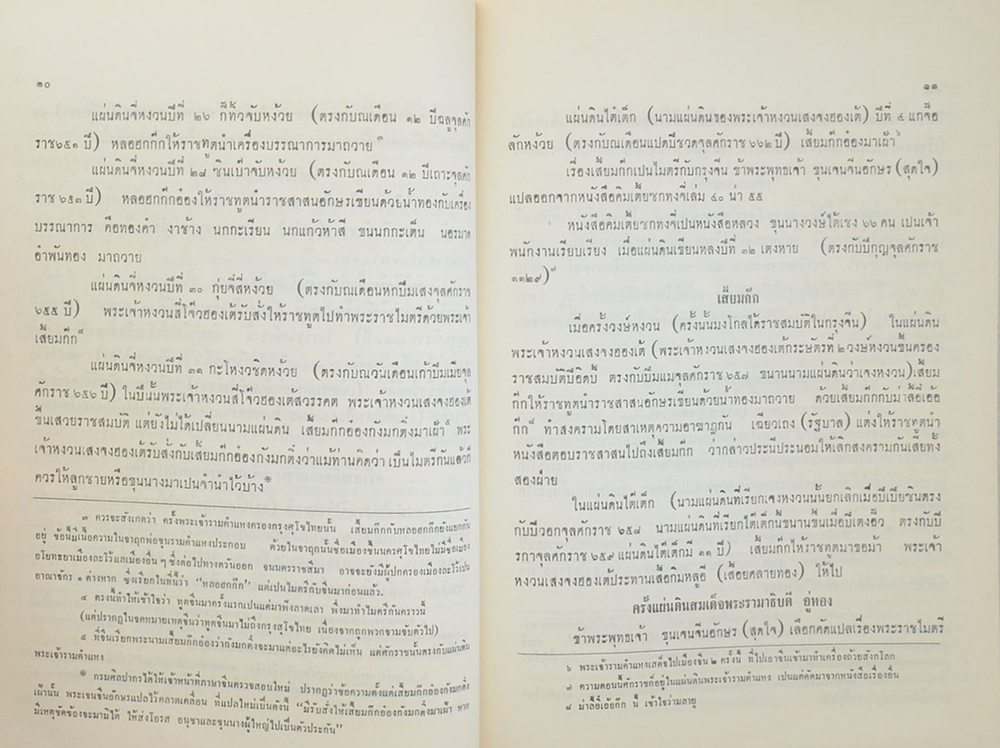 ๑๐
แผ่นดินจี่หงวนปีที่ ๒๖ กี๊ทิ้วจับหง้วย (ตรงกับณเดือน ๑๒ ปีฉลูจุลศัก
ราช๖๕๑ ปี) หลอฮกก๊กให้ราชทูตนำเครื่องบรรณาการมาถวาย๓
แผ่นดินจี่หงวนปีที่ ๒๘ ซินเบ้าจับหง้วย (ตรงกับณเดือน ๑๒ ปีเถาะจุลศัก
ราช ๖๕๓ ปี) หลอฮกก๊กอ๋องให้ราชทูตนำราชสาสนอักษรเขียนด้วยน้ำทองกับเครื่อง
บรรณาการ คือทองคำ งาช้าง นกกะเรียน นกแก้วห้าสี ขนนกกะเต็น นอรมาด
อำพันทอง มาถวาย
แผ่นดินจี่หงวนปีที่ ๓๐ กุ่ยจี๋สี่หง้วย (ตรงกับณเดือนหกปีมเสงจุลศักราช
๖๕๕ ปี) พระเจ้าหงวนสีโจ๊วฮองเต้รับสั่งให้ราชทูตไปทำพระราชไมตรีด้วยพระเจ้า
เสี้ยมก๊ก๔
แผ่นดินจี่หงวนปีที่ ๓๑ กะโหงวชิดหง้วย (ตรงกับณวันเดือนเก้าปีมเมียจุล
ศักราช ๖๕๖ ปี) ในปีนั้นพระเจ้าหงวนสีโจ๊วฮองเต้สวรรคต พระเจ้าหงวนเสงจงฮองเต้
ขึ้นเสวยราชสมบัติ แต่ยังไม่ได้เปลี่ยนนามแผ่นดิน เสี้ยมก๊กอ๋องกังมกติ่งมาเฝ้า๕ พระ
เจ้าหงวนเสงจงฮองเต้รับสั่งกับเสี้ยมก๊กอ๋องกังมกติ่งว่าแม้ท่านคิดว่า เป็นไมตรีกันแล้วก็
ควรให้ลูกชายหรือขุนนางมาเป็นจำนำไว้บ้าง*
๓ ควรจะสังเกตว่า ครั้งพระเจ้ารามคำแหงครองกรุงศุโขไทยนั้น เสี้ยมก๊กกับหลอฮกก๊กยังแยกกัน
อยู่ ข้อนี้มีเนื้อความในจาฤกพ่อขุนรามคำแหงประกอบ ด้วยในจาฤกนั้นชื่อเมืองขึ้นนครศุโขไทยไม่มีชื่อเมือง
อโยทธยาเมืองละโว้แลเมืองอื่น ๆ ซึ่งต่อไปทางตวันออก จนนครราชสีมา อาจจะยังมีผู้ปกครองเมืองละโว้เป็น
อาณาจักร ๑ ต่างหาก ซึ่งเรียกในที่นี้ว่า "หลอฮกก๊ก" แต่เป็นไมตรีกับจีนมาก่อนแล้ว.
๔ ตรงนี้ทำให้เข้าใจว่า ทูตจีนมาครั้งแรกเป็นแต่มาพึ่งลาดเลา พึ่งมาทำไมตรีกันคราวนี้
(แต่ปรากฏในจดหมายเหตุจีนว่าทูตจีนมาไม่ถึงกรุงสุโขไทย เนื่องจากถูกพวกจามจับตัวไป)
๕ ที่จีนเรียกพระนามเสี้ยมก๊กอ๋องว่ากังมกติ่งจะมาแต่อะไรยังคิดไม่เห็น แต่ศักราชนั้นตรงกับแผ่นดิน
พระเจ้ารามคำแหง
* กรมศิลปากรได้ให้เจ้าหน้าที่ภาษาจีนตรวจสอบใหม่ ปรากฏว่าข้อความตั้งแต่เสี้ยมก๊กอ๋องกังมกติ่ง
เฝ้านั้น พระเจนจีนอักษรแปลไว้คลาดเคลื่อน ที่แปลใหม่เป็นดังนี้ "มีรับสั่งให้เสี้ยมก๊กอ๋องกังมกติ่งมาเฝ้า หาก
มีเหตุขัดข้องจะมามิได้ ให้ส่งโอรส อนุชาและขุนนางผู้ใหญ่ไปเป็นตัวประกัน"
๑๑
แผ่นดินไต๋เต็ก (นามแผ่นดินของพระเจ้าหงวนเสงจงฮองเต้) ปีที่ ๔ แกจื๊อ
ลักหง้วย (ตรงกับณเดือนแปดปีชวดจุลศักราช ๖๖๒ ปี) เสี้ยมก๊กอ๋องมาเฝ้า๖
เรื่องเสี้ยมก๊กเป็นไมตรีกับกรุงจีน ข้าพระพุทธเจ้า ขุนเจนจีนอักษร (สุดใจ)
แปลออกจากหนังสือคิมเตี้ยซกทงจี่เล่ม ๔๐ น่า ๕๕
หนังสือคิมเตี้ยซกทงจี่เป็นหนังสือหลวง ขุนนางวงษ์ไต้เชง ๖๖ คน เปนเจ้า
พนักงานเรียบเรียง เมื่อแผ่นดินเขียนหลงปีที่ ๓๒ เตงหาย (ตรงกับปีกุญจุลศักราช
๑๑๒๙)๗
เสี้ยมก๊ก
เมื่อครั้งวงษ์หงวน (ครั้งนั้นมงโกลได้ราชสมบัติในกรุงจีน) ในแผ่นดิน
พระเจ้าหงวนเสงจงฮองเต้ (พระเจ้าหงวนเสงจงฮองเต้กระษัตริที่ ๒ วงษ์หงวนขึ้นครอง
ราชสมบัติปีอิดบี้ ตรงกับปีมแมจุลศักราช ๖๕๗ ขนานนามแผ่นดินว่าเจงหงวน)เสี้ยม
ก๊กให้ราชทูตนำราชสาสนอักษรเขียนด้วยน้ำทองมาถวาย ด้วยเสี้ยมก๊กกับม่าลี้อเออ
ก๊ก๘ ทำสงครามโดยสาเหตุความอาฆาฏกัน เฉียวเถง (รัฐบาล) แต่งให้ราชทูตนำ
หนังสือตอบราชสาสนไปถึงเสี้ยมก๊ก ว่ากล่าวประนีประนอมให้เลิกสงครามกันเสียทั้ง
สองฝ่าย
ในแผ่นดินไต๋เต็ก (นามแผ่นดินที่เรียกเจงหงวนนั้นยกเลิกเมื่อปีเปียซินตรง
กับปีวอกจุลศักราช ๖๕๘ นามแผ่นดินที่เรียกไต๋เต็กนี้ขนานขึ้นเมื่อปีเตงอิ้ว ตรงกับปี
รกาจุลศักราช ๖๕๙ แผ่นดินไต๋เต็กมี ๑๑ ปี) เสี้ยมก๊กให้ราชทูตมาขอม้า พระเจ้า
หงวนเสงจงฮองเต้ประทานเสื้อกิมหลูอี (เสื้อยคลายทอง) ให้ไป
ครั้งแผ่นดินสมเด็จพระรามาธิบดี อู่ทอง
ข้าพระพุทธเจ้า ขุนเจนจีนอักษร (สุดใจ) เลือกคัดแปลเรื่องพระราชไมตรี
๖ พระเจ้ารามคำแหงเสด็จไปเมืองจีน ๒ ครั้งนี้ ที่ไปเอาจีนเข้ามาทำเครื่องถ้วยสังกโลก
๗ ความตอนนี้ศักราชก็อยู่ในแผ่นดินพระเจ้ารามคำแหง เป็นแต่คัดมาจากหนังสือเรื่องอื่น
๘ ม่าลี้อเออก๊ก นี้ เข้าใจว่ามลายู